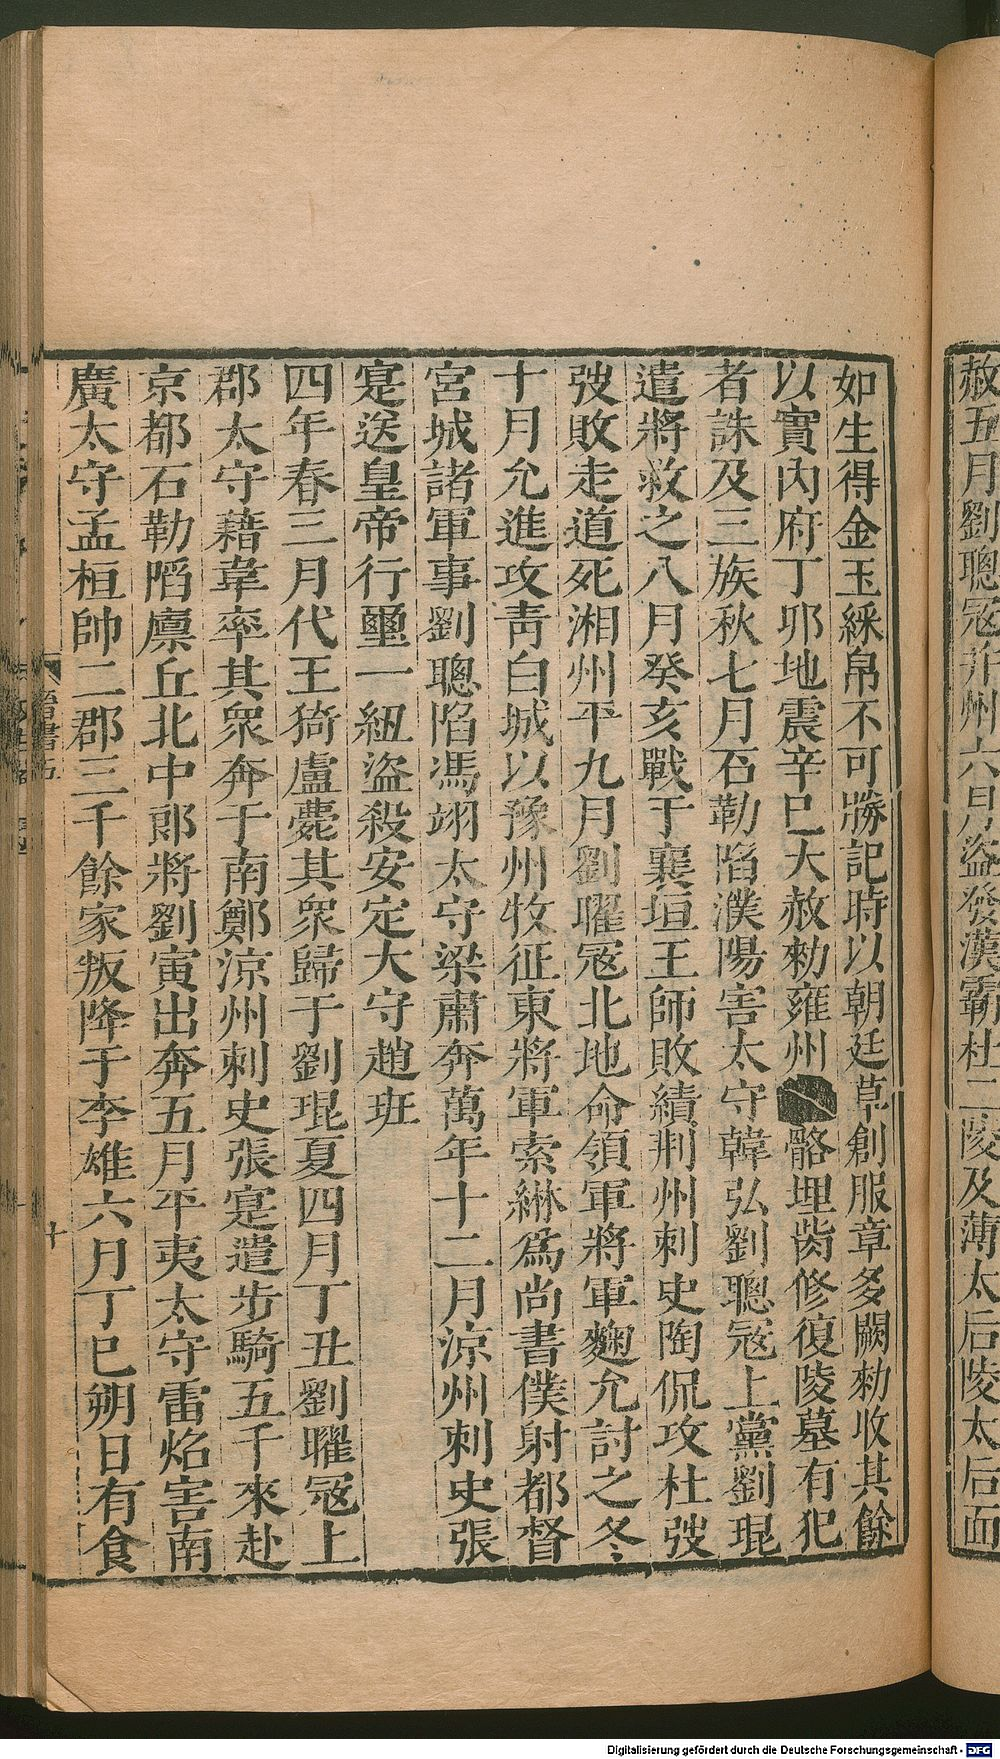 赦五月劉聰寇并州六月盜發漢霸杜二陵及薄太后陵太后面
如生得金玉綵帛不可勝記時以朝廷草創服章多闕勑收其餘
以實內府丁卯地震辛巳大赦勑雍州骼埋胔修復陵墓有犯
者誅及三族秋七月石勒陷濮陽害太守韓弘劉聰寇上黨劉琨
遣將救之八月癸亥戰于襄垣王師敗績荆州刺史陶侃攻杜弢
弢敗走道死湘州平九月劉曜寇北地命領軍將軍麴允討之冬
十月允進攻靑白城以豫州牧征東將軍索綝爲尚書僕射都督
宮城諸軍事劉聰陷馮翊太守梁肅奔萬年十二月涼州刺史張
寔送皇帝行璽一紐盜殺安定大守趙班
四年春三月代王猗盧薨其衆歸于劉琨夏四月丁丑劉曜寇上
郡太守藉韋率其衆奔于南鄭涼州刺史張寔遣步騎五千來赴
京都石勒陷廪丘北中郎將劉寅出奔五月平夷太守雷炤害南
廣太守孟桓帥二郡三千餘家叛降于李雄六月丁巳朔日有食
晉書五
十
Digitalisierung gefördert durch die Deutsche Forschungsgemeinschaft - DFG